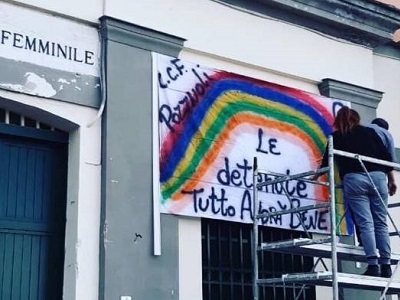 FEMMINILE
C.C.F.
Pozzuoli
Le
detenute
Tutto Andrà BENE